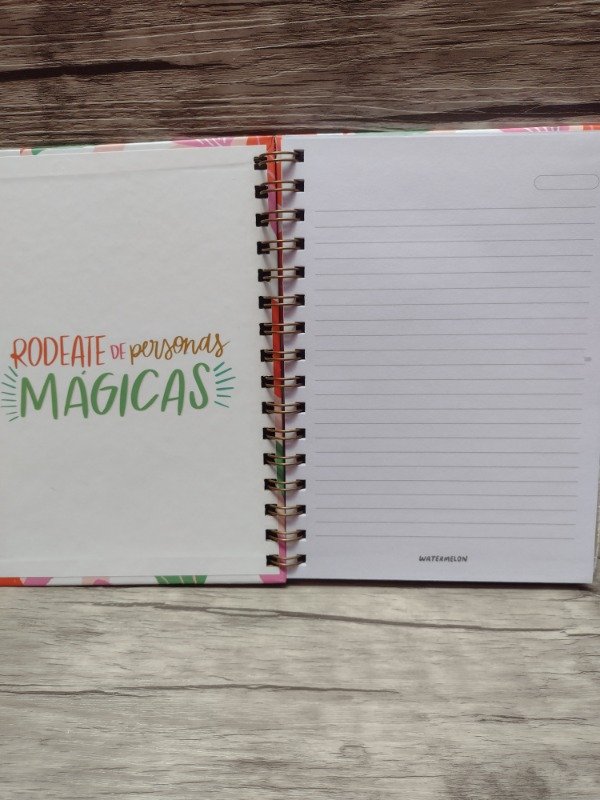 RODEATE DE personas
MÁGICAS
WATERMELON